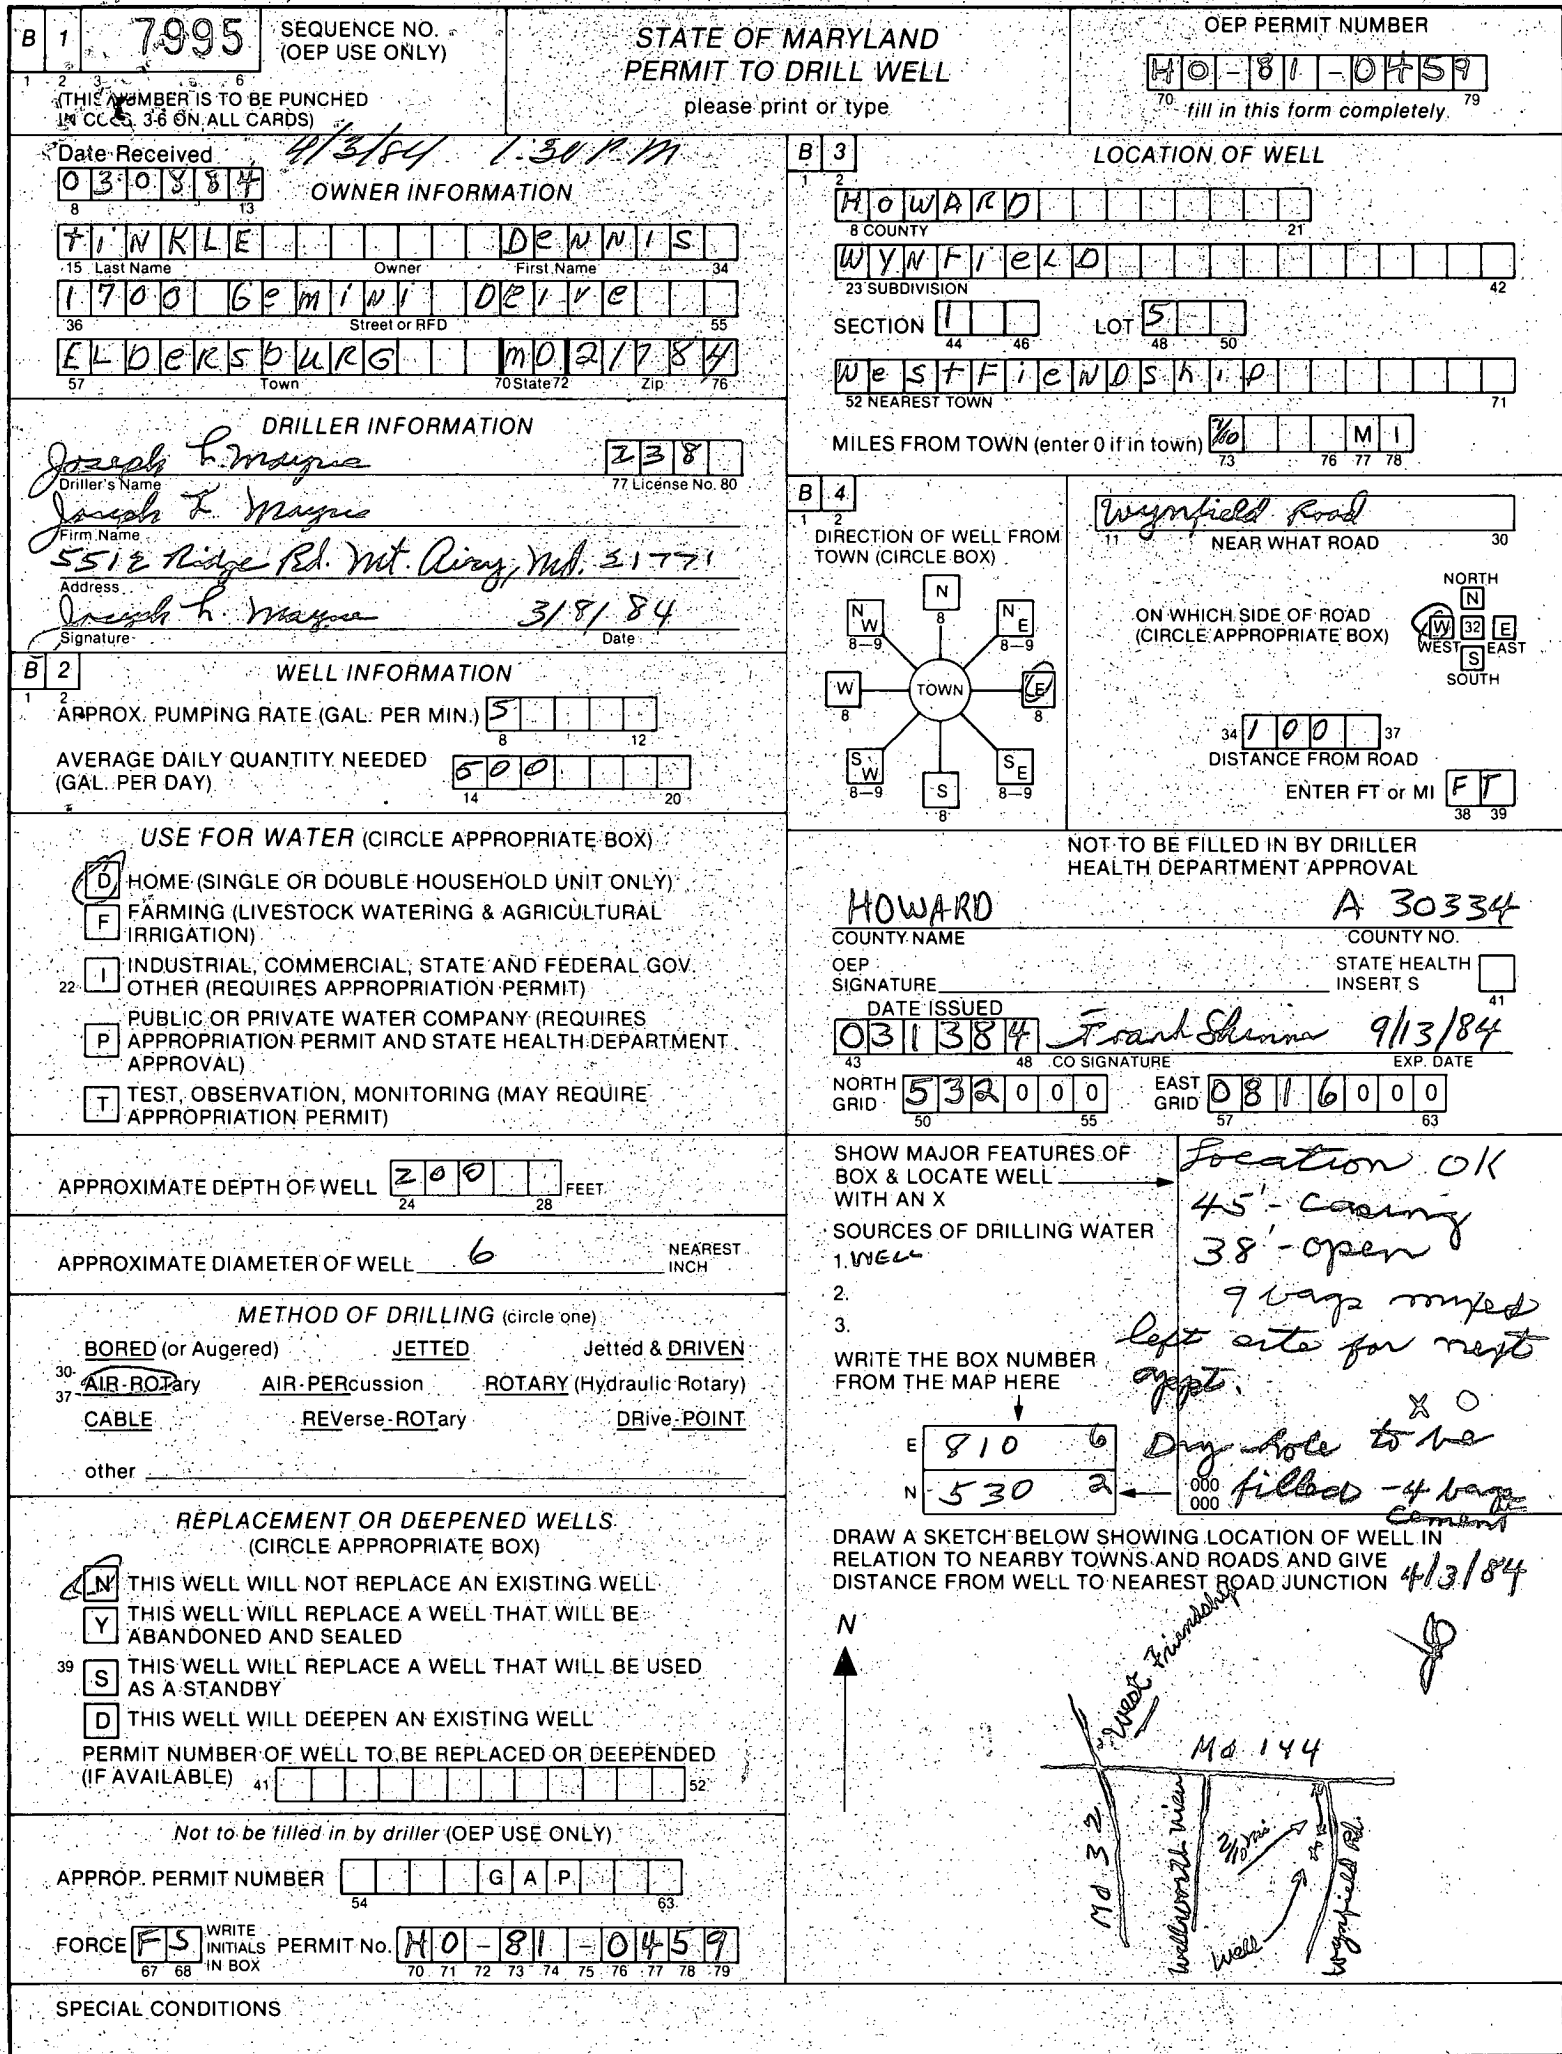 B 1 7995 SEQUENCE NO. (OEP USE ONLY)
1 2 3 6
(THIS NUMBER IS TO BE PUNCHED
IN COLS. 3-6 ON ALL CARDS)
STATE OF MARYLAND
PERMIT TO DRILL WELL
please print or type
OEP PERMIT NUMBER
HO-81-0459
70 79
fill in this form completely
Date Received 4/3/84 1:30 P.M
030884
8 13
OWNER INFORMATION
tiNKLE DeNNIS
15 Last Name Owner First Name 34
1700 Gemini Drive
36 Street or RFD 55
ELDersburg mD 21784
57 Town 70 State 72 Zip 76
DRILLER INFORMATION
Joseph L. Mayne 238
Driller's Name 77 License No. 80
Joseph L. Mayne
Firm Name
5512 Ridge Rd. Mt. Airy, Md. 21771
Address
Joseph L. Mayne 3/8/84
Signature Date
B 2 WELL INFORMATION
1 2
APPROX. PUMPING RATE (GAL. PER MIN.) 5
8 12
AVERAGE DAILY QUANTITY NEEDED
(GAL. PER DAY) 500
14 20
USE FOR WATER (CIRCLE APPROPRIATE BOX)
D HOME (SINGLE OR DOUBLE HOUSEHOLD UNIT ONLY)
F FARMING (LIVESTOCK WATERING & AGRICULTURAL
IRRIGATION)
22 I INDUSTRIAL, COMMERCIAL, STATE AND FEDERAL GOV.
OTHER (REQUIRES APPROPRIATION PERMIT)
P PUBLIC OR PRIVATE WATER COMPANY (REQUIRES
APPROPRIATION PERMIT AND STATE HEALTH DEPARTMENT
APPROVAL)
T TEST, OBSERVATION, MONITORING (MAY REQUIRE
APPROPRIATION PERMIT)
APPROXIMATE DEPTH OF WELL 200 FEET
24 28
APPROXIMATE DIAMETER OF WELL 6 NEAREST INCH
METHOD OF DRILLING (circle one)
BORED (or Augered) JETTED Jetted & DRIVEN
30-37 AIR-ROTary AIR-PERcussion ROTARY (Hydraulic Rotary)
CABLE REVerse-ROTary DRive-POINT
other
REPLACEMENT OR DEEPENED WELLS
(CIRCLE APPROPRIATE BOX)
N THIS WELL WILL NOT REPLACE AN EXISTING WELL
Y THIS WELL WILL REPLACE A WELL THAT WILL BE
ABANDONED AND SEALED
39 S THIS WELL WILL REPLACE A WELL THAT WILL BE USED
AS A STANDBY
D THIS WELL WILL DEEPEN AN EXISTING WELL
PERMIT NUMBER OF WELL TO BE REPLACED OR DEEPENDED
(IF AVAILABLE) 41 52
Not to be filled in by driller (OEP USE ONLY)
APPROP. PERMIT NUMBER GAP
54 63
FORCE FS WRITE INITIALS IN BOX PERMIT No. HO-81-0459
67 68 70 71 72 73 74 75 76 77 78 79
SPECIAL CONDITIONS
B 3 LOCATION OF WELL
1 2
HOWARD
8 COUNTY 21
WYNFieLD
23 SUBDIVISION 42
SECTION 1 LOT 5
44 46 48 50
WestFiendship
52 NEAREST TOWN 71
MILES FROM TOWN (enter 0 if in town) 7/10 MI
73 76 77 78
B 4
1 2
DIRECTION OF WELL FROM
TOWN (CIRCLE BOX)
N
8
NW NE
8-9 8-9
W TOWN E
8 8
SW SE
8-9 8-9
S
8
Wynfield Road
11 NEAR WHAT ROAD 30
ON WHICH SIDE OF ROAD
(CIRCLE APPROPRIATE BOX)
NORTH
N
W 32 E
WEST EAST
S
SOUTH
34 100 37
DISTANCE FROM ROAD
ENTER FT or MI FT
38 39
NOT TO BE FILLED IN BY DRILLER
HEALTH DEPARTMENT APPROVAL
HOWARD A 30334
COUNTY NAME COUNTY NO.
OEP SIGNATURE STATE HEALTH INSERT S
41
DATE ISSUED
031384 Frank Skinner 9/13/84
43 48 CO SIGNATURE EXP. DATE
NORTH GRID 532000 EAST GRID 0816000
50 55 57 63
SHOW MAJOR FEATURES OF
BOX & LOCATE WELL
WITH AN X
SOURCES OF DRILLING WATER
1. WELL
2.
3.
WRITE THE BOX NUMBER
FROM THE MAP HERE
E 810 6
N 530 2
000
000
Location OK
45' - Casing
38' - open
9 bags mixed
left site for next
appt.
X O
Dry hole to be
filled - 4 bags
Cement
4/3/84
DRAW A SKETCH BELOW SHOWING LOCATION OF WELL IN
RELATION TO NEARBY TOWNS AND ROADS AND GIVE
DISTANCE FROM WELL TO NEAREST ROAD JUNCTION
N
West Friendship
Md 144
Md 32
2/10 mi
Well
Wynfield Rd.